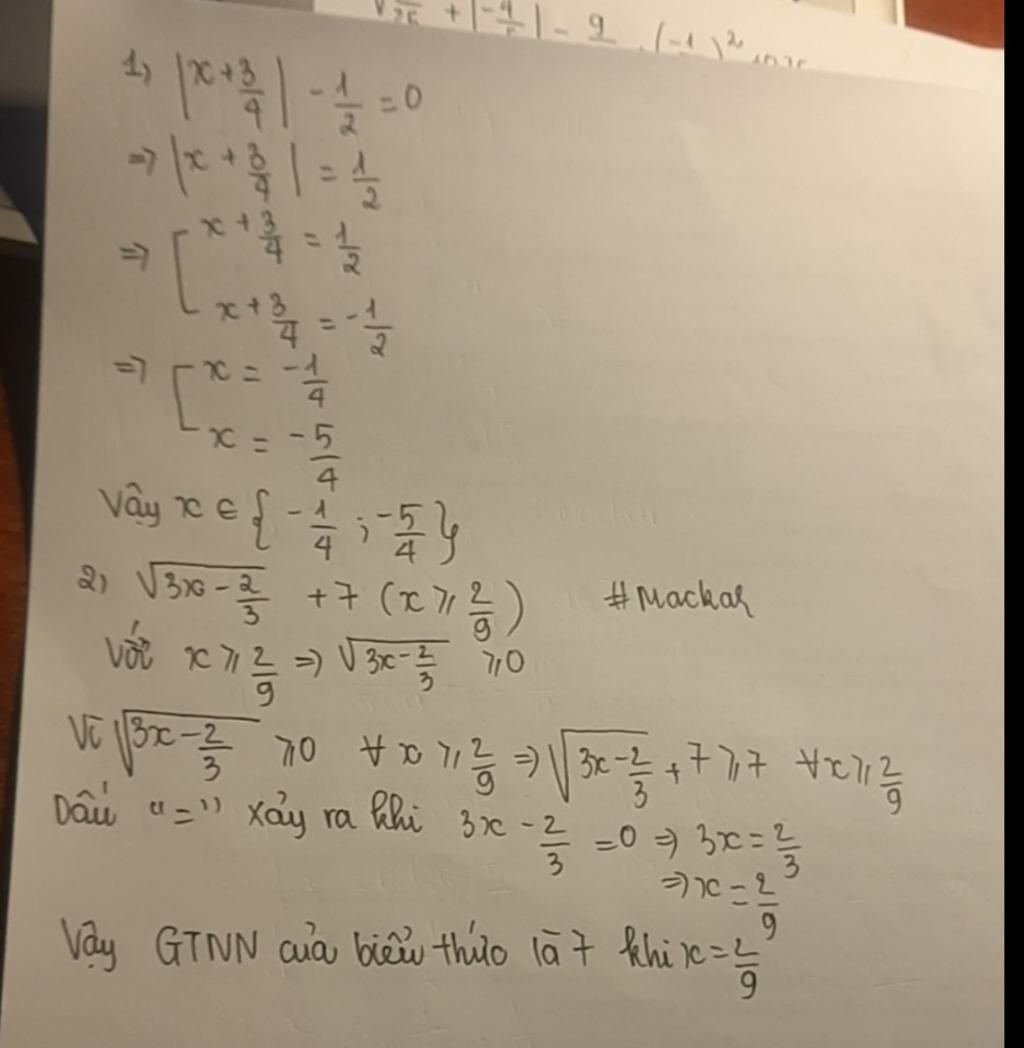 √ 25 + |-4/5| - 9 . (-1)²
1, |x + 3/4| - 1/2 = 0
=> |x + 3/4| = 1/2
=> [ x + 3/4 = 1/2
x + 3/4 = -1/2
=> [ x = -1/4
x = -5/4
Vậy x ∈ { -1/4 ; -5/4 }
2, √(3x - 2/3) + 7 (x ⩾ 2/9) #Mackar
Với x ⩾ 2/9 => √(3x - 2/3) ⩾ 0
Vì √(3x - 2/3) ⩾ 0 ∀x ⩾ 2/9 => √(3x - 2/3) + 7 ⩾ 7 ∀x ⩾ 2/9
Dấu "=" xảy ra khi 3x - 2/3 = 0 => 3x = 2/3
=> x = 2/9
Vậy GTNN của biểu thức là 7 khi x = 2/9